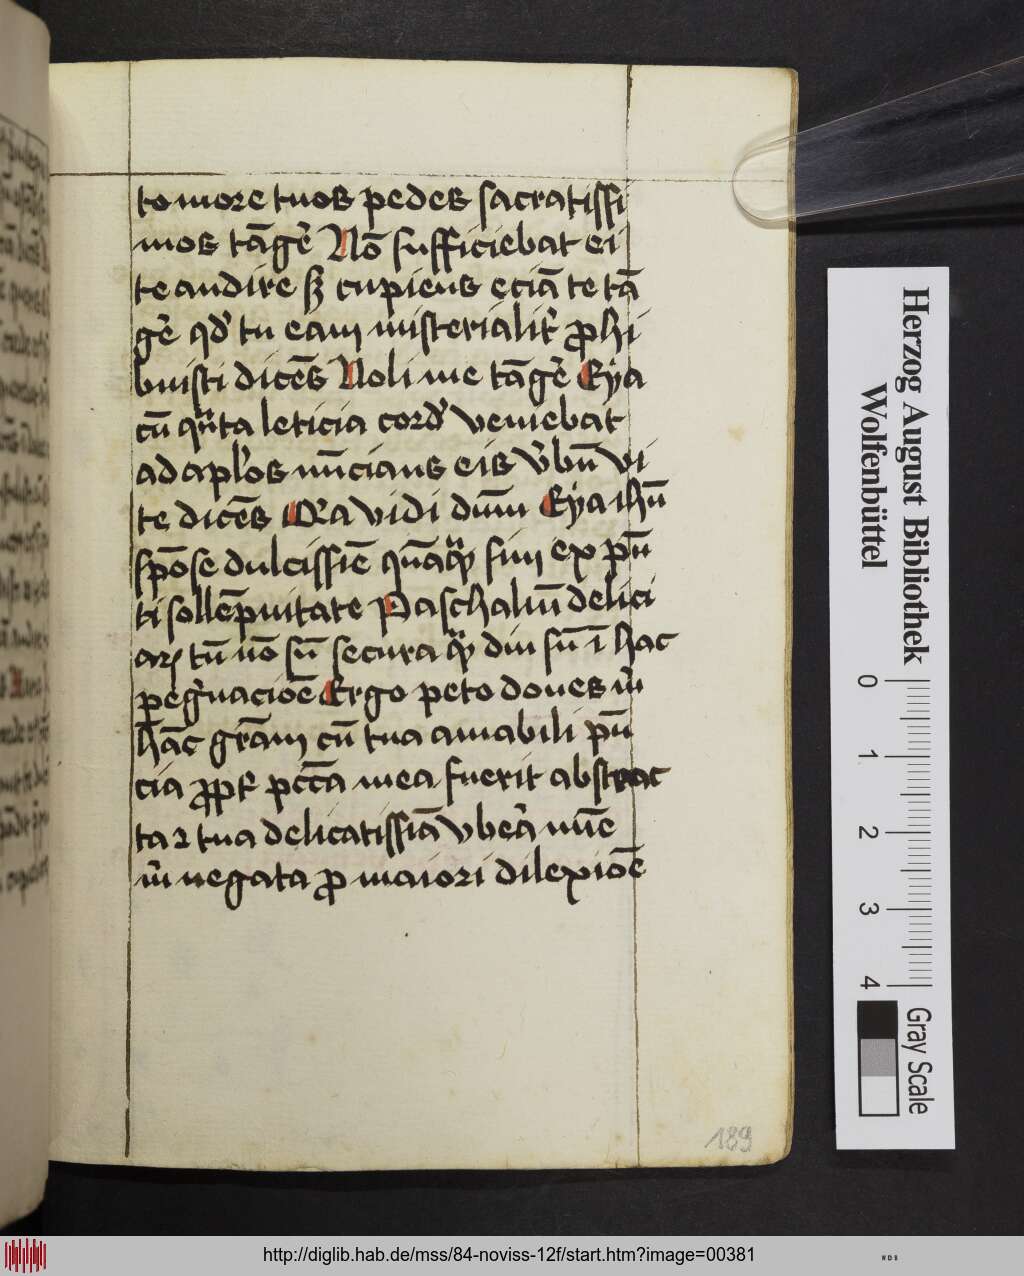 to more tuos pedes sacratissi
mos tāgē Nō sufficiebat ei
te audire sꝫ cupiens eciā te tā
gē qd' tu eam misterialit' ꝓhi
buisti dicēs Noli me tāgē Eya
cū q̄nta leticia cord' veniebat
ad aplos nūcians eis v'bū vi
te dicēs Q'a vidi dūm Eya ihū
spōse dulcissīe quāq̄ſ sim ex pn̄
ti sollēpnitate Paschaliū delici
aꝝ tū nō sū secura q̄ diu sū ī hac
pegrinacioē Ergo peto dones m̄
hāc grām cū tua amabili pn̄
cia ꝓpt' pctā mea fuerit abstrac
ta ⁊ tua delicatissīa vbera nūc
m̄ negata ꝓ maiori dilexioē
189
Herzog August Bibliothek
Wolfenbüttel
0 1 2 3 4
Gray Scale
http://diglib.hab.de/mss/84-noviss-12f/start.htm?image=00381